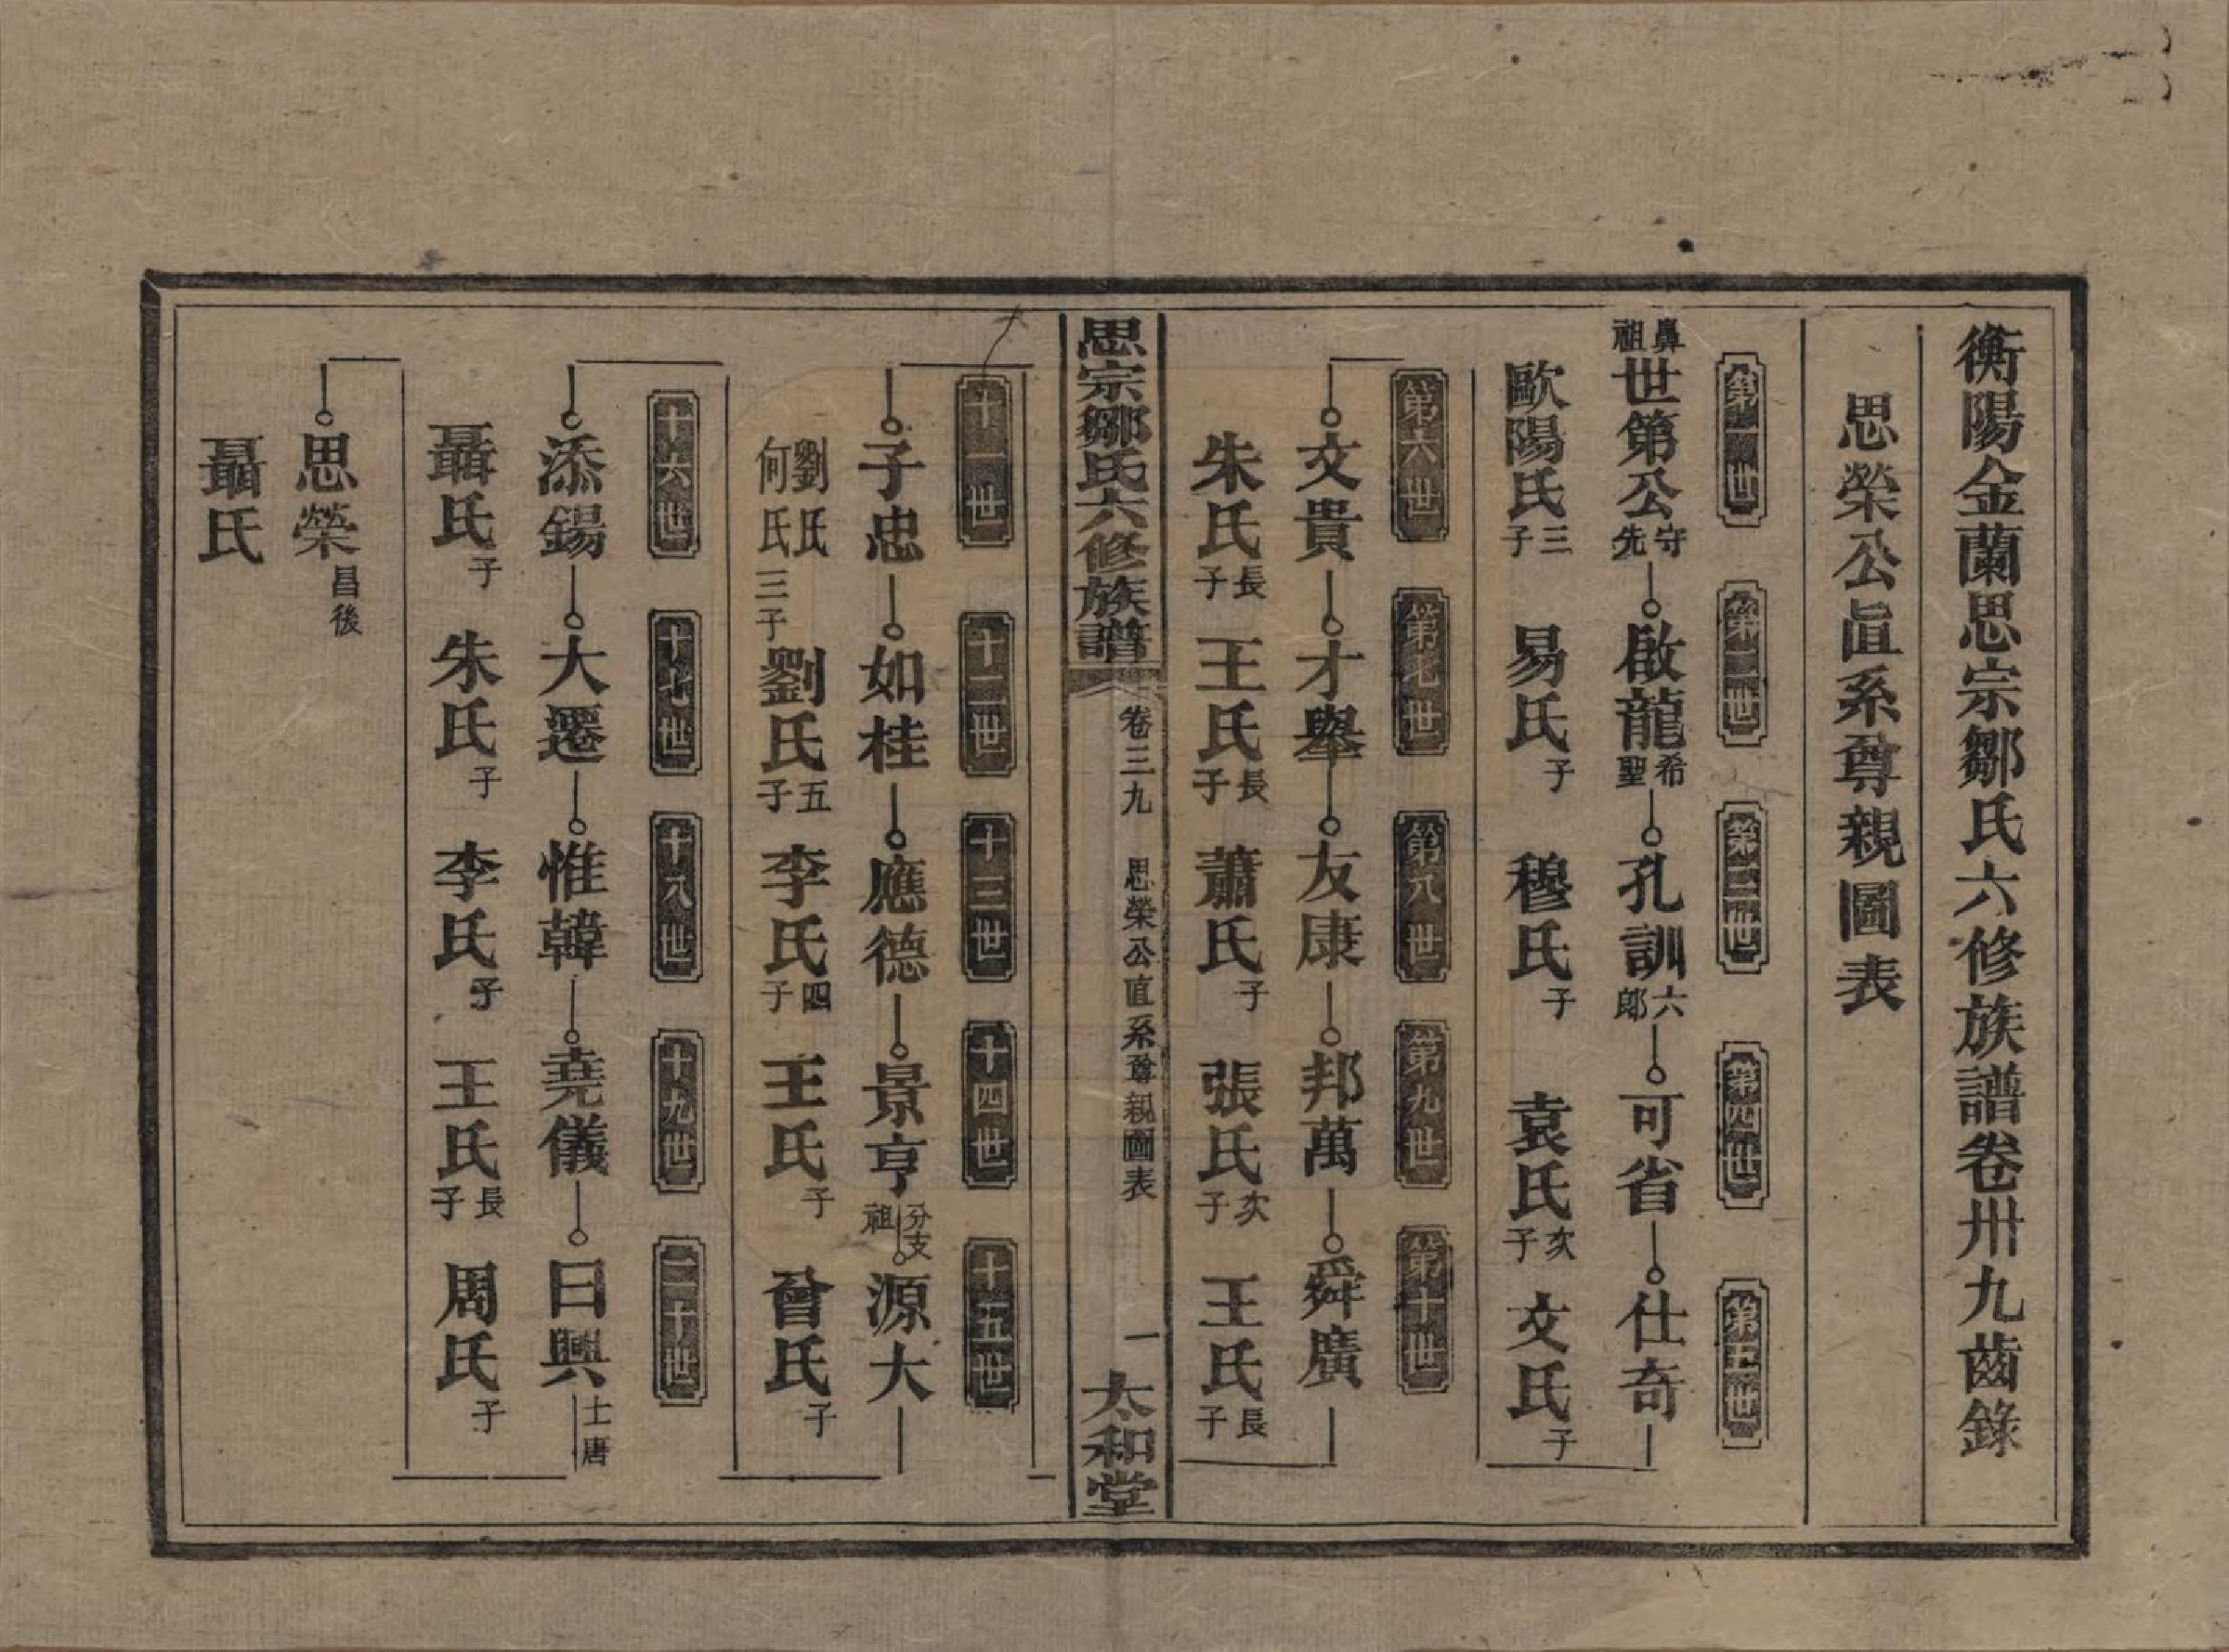 衡陽金蘭思宗鄒氏六修族譜卷卅九齒錄
思榮公直系尊親圖表
第一世 第二世 第三世 第四世 第五世
鼻祖 世第公 守先 啟龍 希聖 孔訓 六郎 可省 仕奇
歐陽氏 三子 易氏 子 穆氏 子 袁氏 次子 文氏 子
第六世 第七世 第八世 第九世 第十世
文貴 才舉 友康 邦萬 舜廣
朱氏 長子 王氏 長子 蕭氏 子 張氏 次子 王氏 長子
思宗鄒氏六修族譜 卷三九 思榮公直系尊親圖表 一 太和堂
十一世 十二世 十三世 十四世 十五世
子忠 如桂 應德 景亨 分支祖 源大
劉氏 何氏 三子 劉氏 五子 李氏 四子 王氏 子 曾氏 子
十六世 十七世 十八世 十九世 二十世
添錫 大遷 惟韓 堯儀 曰興 士唐
聶氏 子 朱氏 子 李氏 子 王氏 長子 周氏 子
思榮 昌後
聶氏